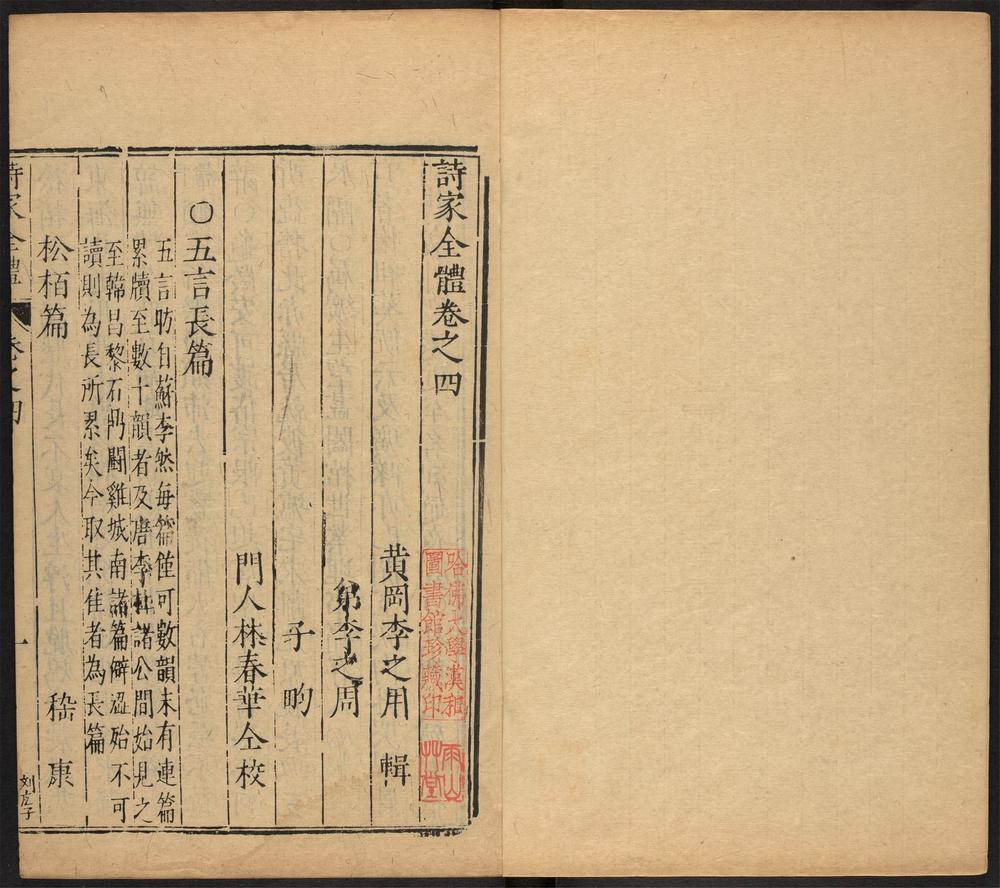 詩家全體卷之四
黃岡李之用 輯
弟李之周
子 昀
門人林春華仝校
○五言長篇
五言昉自蘇李然每篇僅可數韻未有連篇
累牘至數十韻者及唐李杜諸公間始見之
至韓昌黎石鼎鬪雞城南諸篇僻澁殆不可
讀則為長所累矣今取其佳者為長篇
松栢篇 嵇康
詩家全體 卷之四 一
哈佛大學漢和
圖書館珍藏印
雨山
草堂